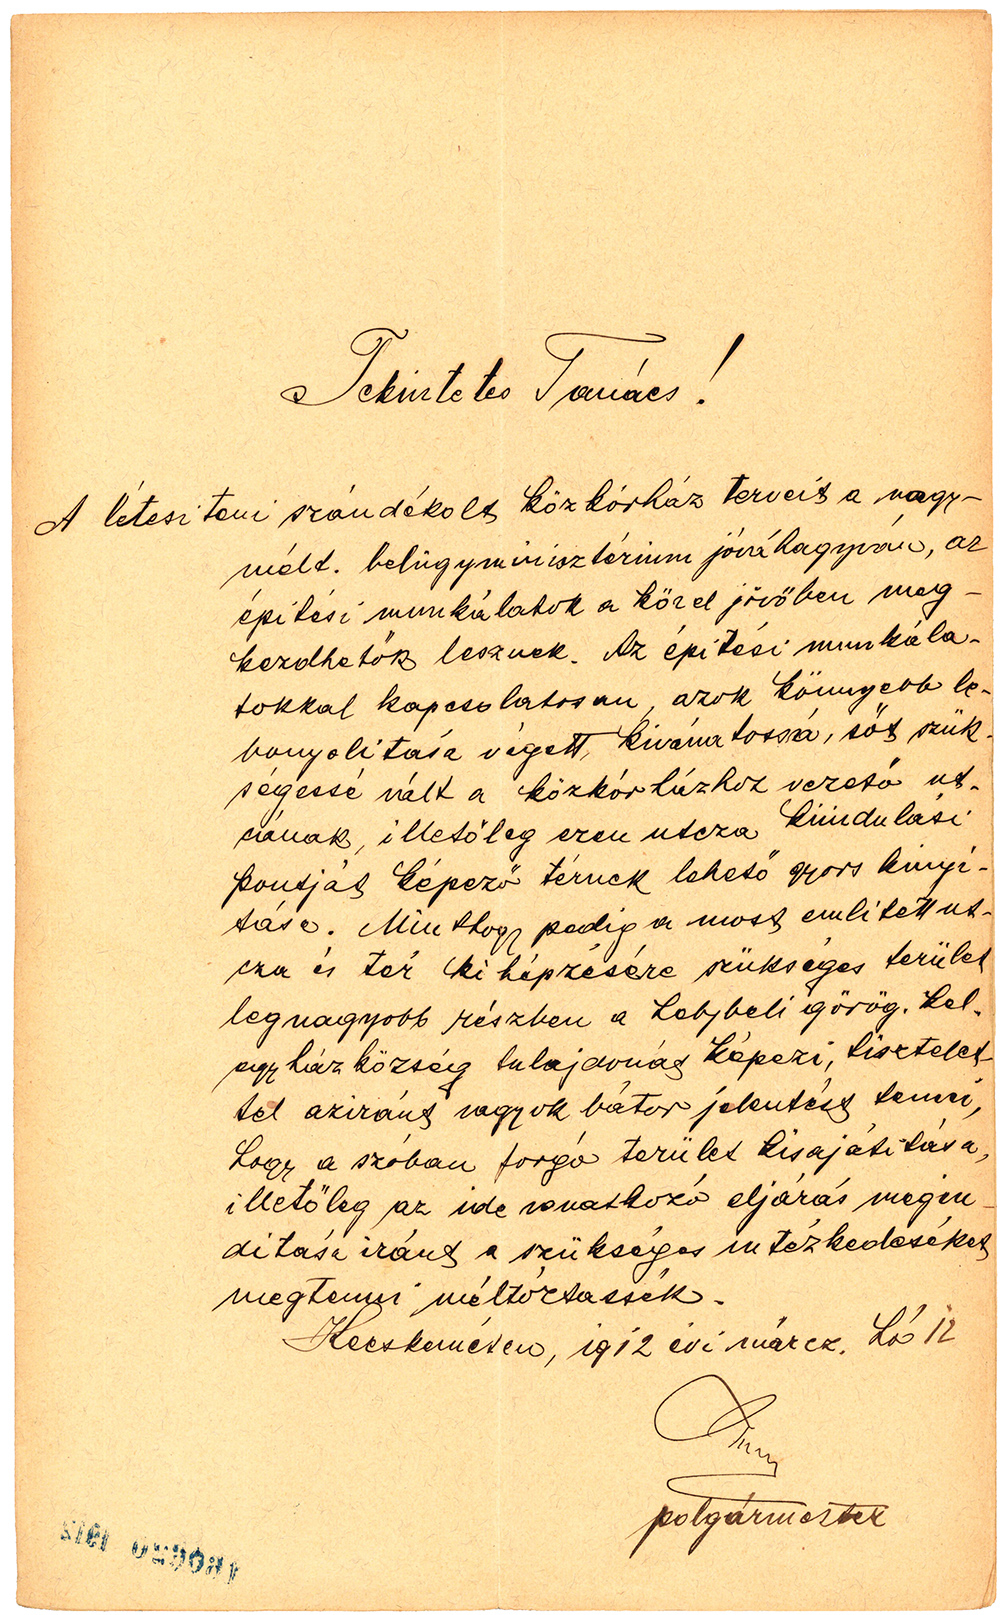 Tekintetes Tanács!
A létesiteni szándékolt közkórház terveit a nagy-
mélt. belügyminisztérium jóváhagyván, az
épitési munkálatok a közel jövőben meg-
kezdhetők lesznek. Az épitési munkála-
tokkal kapcsolatosan, azok könnyebb le-
bonyolitása végett, kivánatossá, sőt szük-
ségessé vált a közkórházhoz vezető ut-
czának, illetőleg ezen utcza kiindulási
pontját képező térnek lehető gyors kinyi-
tása. Minthogy pedig a most emlitett ut-
cza és tér kiképzésére szükséges terület
legnagyobb részben a helybeli görög. kel.
egyházközség tulajdonát képezi, tisztelet-
tel aziránt vagyok bátor jelentést tenni,
hogy a szóban forgó terület kisajátitása,
illetőleg az ide vonatkozó eljárás megin-
ditása iránt a szükséges intézkedéseket
megtenni méltóztassék.
Kecskeméten, 1912 évi márcz. hó 12
polgármester